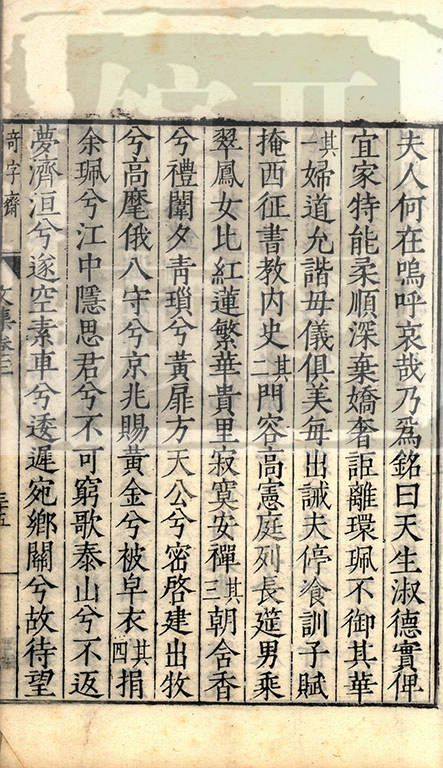 夫人何在嗚呼哀哉乃爲銘曰天生淑德實俾
宜家特能柔順深棄嬌奢詎離環珮不御其華
其一婦道允諧毋儀俱美每出誡夫停飡訓子賦
掩西征書教内史其二門容高憲庭列長筵男乘
翠鳳女比紅蓮繁華貴里寂寞安禪其三朝舍香
兮禮闈夕靑瑣兮黃扉方天公兮密啓建出牧
兮高麾俄八守兮京兆賜黃金兮被皁衣其四捐
余珮兮江中隱思君兮不可窮歌泰山兮不返
夢濟洹兮遂空素車兮逶遲宛鄉關兮故待望
奇字齋
文集卷三
三五